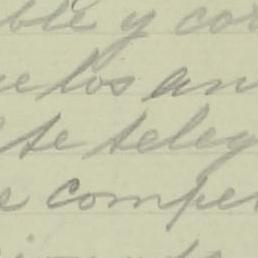 ble y cor
e los an
te teleg
e compe